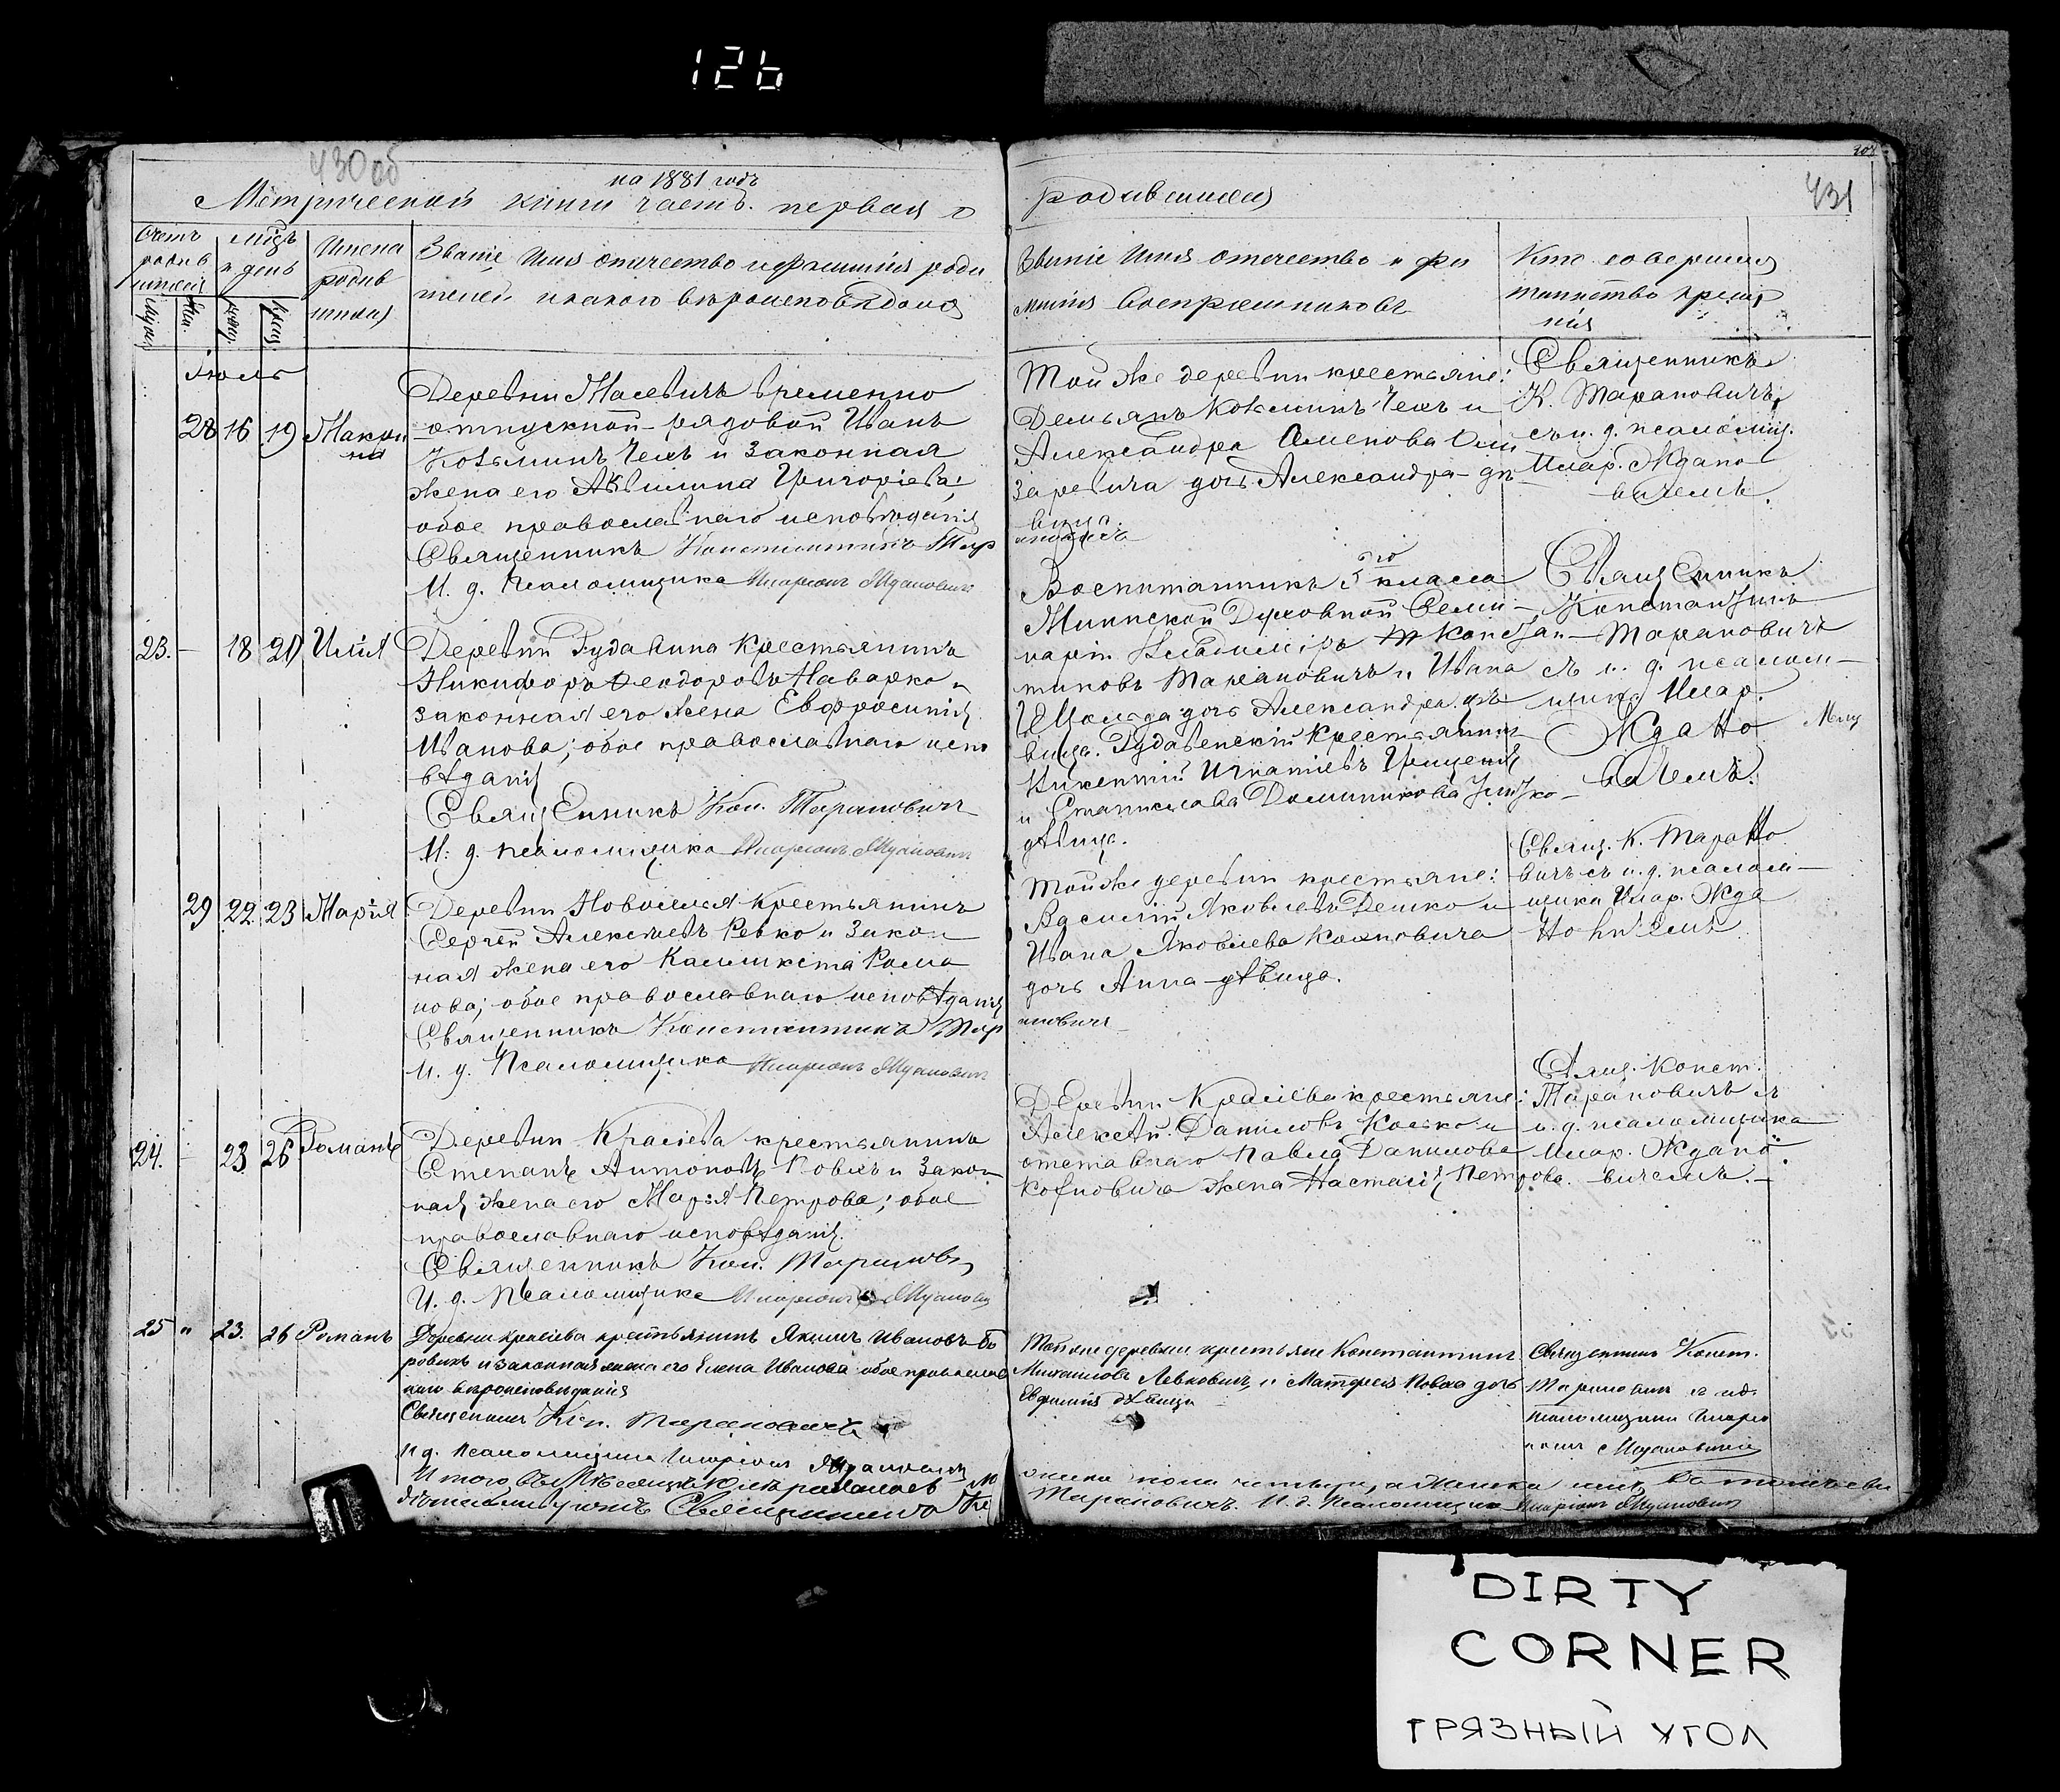 126
430 об
на 1881 годъ
Метрической книги часть первая о
родившихся
431
Счетъ
родив
шихся
Мѣсяцъ
и день
Имена
родив
шихся
Званіе Имя отчество и фамилія роди
телей и какого вѣроисповѣданія
Званіе Имя отчество и фа
милія Воспріемниковъ
Кто совершалъ
таинство креще
нія
Іюль
28 16 19 Макри
на
Деревни Масевичъ временно
отпускной рядовой Иванъ
Козьминъ Чехъ и законная
жена его Акилина Григоріева;
обое православнаго исповѣданія
Священникъ Константинъ Тар
И. д. Псаломщика Иларіонъ Ждановичъ
Той же деревни крестьяне:
Демьянъ Козьминъ Чехъ и
Александра Семенова
заревича дочь Александра дѣ
вица.
Священникъ
К. Тарановичъ
съ и. д. псаломщ.
Илар. Ждано
вичемъ.
23. – 18 20 Илія
Деревни Рудавина Крестьянинъ
Никифоръ Феодоровъ Наварко и
законная его жена Евфросинія
Иванова; обое православнаго испо
вѣданія
Священникъ Кон. Тарановичъ
И. д. псаломщика Иларіонъ Ждановичъ
Воспитанникъ 5го класса
Минской Духовной Семи–
наріи Владиміръ Констан–
тиновъ Тарановичъ и Ивана
дочь Александра дѣ
вица. Рудавенскій Крестьянинъ
Викентій Игнатіевъ
и Станислава Доминикова
дѣвица.
Священникъ
Константинъ
Тарановичъ
съ и. д. псалом–
щика Илар.
Ждано
вичемъ.
29 22 23 Марія
Деревни Новоселья Крестьянинъ
Сергей Алексѣевъ Ревко и закон
ная жена его Калликста Рома
нова; обое православнаго исповѣданія
Священникъ Константинъ Тар
И. д. Псаломщика Иларіонъ Ждановичъ
Той же деревни крестьяне:
Василій Яковлевъ Демко и
Ивана Яковлева
дочь Анна дѣвица.
ановичъ
Свящ. К. Тарано
вичъ съ и. д. псалом–
щика Илар. Жда
новичемъ
24. – 23 26 Романъ
Деревни Красіева крестьянинъ
Степанъ Антоновъ и закон
ная жена его Марія Петрова; обое
православнаго исповѣданія.
Священникъ Кон. Тарановичъ
И. д. Псаломщика Иларіонъ Ждановичъ
Деревни Красіева крестьяне:
Алексѣй Даниловъ и
отставнаго Павла Данилова
жена Настасія Петрова.
Свящ. Конст.
Тарановичъ съ
и. д. псаломщика
Илар. Ждано
вичемъ. –
25 " 23. 26 Романъ
Деревни Красіева крестьянинъ Якимъ Ивановъ Бо
ровикъ и законная жена его Елена Иванова обое православ
наго вѣроисповѣданія
Священникъ Кон. Тарановичъ
И д. Псаломщика Иларіонъ Ждановичъ
Той же деревни крестьяне Константинъ
Михаиловъ Левковичъ и дочь
Евдокия дѣвица
Священникъ Конст.
Тарановичъ съ и д.
псаломщика Иларі
ономъ Ждановичемъ
Итого въ мѣсяцѣ Іюлѣ родилось
Священникъ
Тарановичъ. И. д. Псаломщика Иларіонъ Ждановичъ
DIRTY
CORNER
ГРЯЗНЫЙ УГОЛ